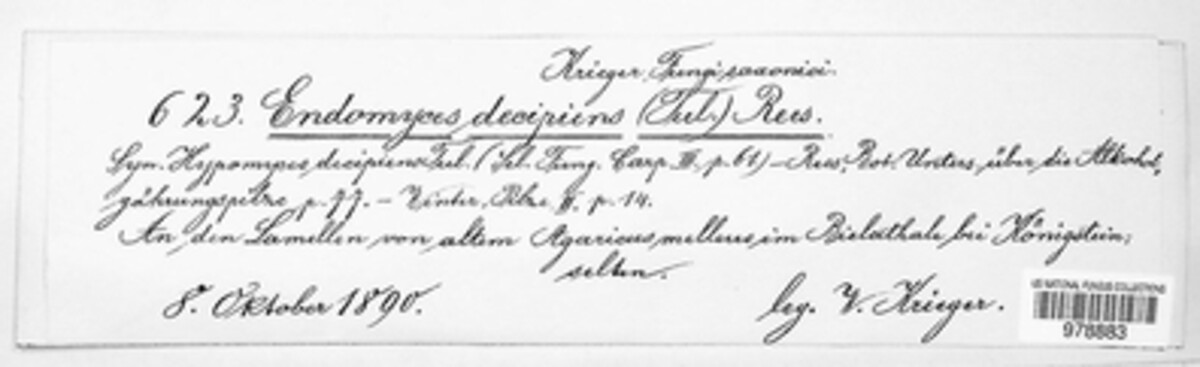 Krieger, Fungi saxonici.
623. Endomyces decipiens (Tul.) Rees.
Syn. Hypomyces decipiens Tul. (Sel. Fung. Carp. III, p. 61) – Rees, Bot. Unters. über die Alkohol,
gährungspilze p. 77. – Winter, Pilze II, p. 14.
An den Lamellen von altem Agaricus melleus im Bielathale bei Königstein;
selten.
8. Oktober 1890.
leg. W. Krieger.
US NATIONAL FUNGUS COLLECTIONS
978883